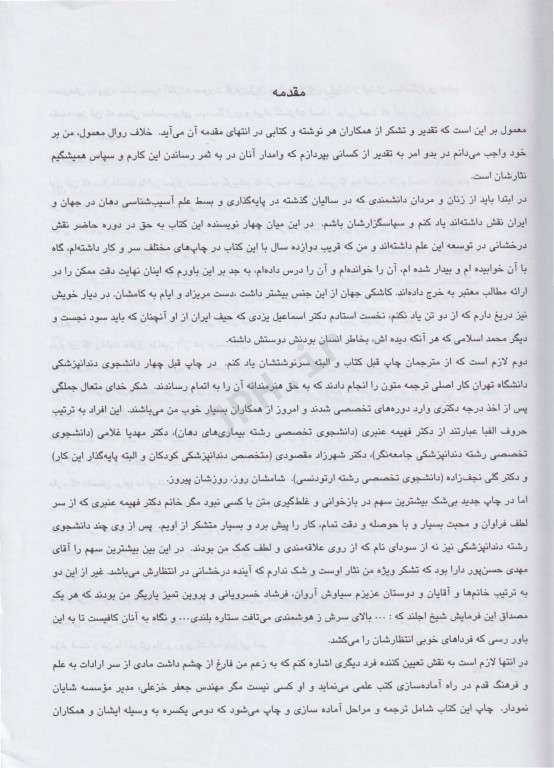 مقدمه
معمول بر این است که تقدیر و تشکر از همکاران هر نوشته و کتابی در انتهای مقدمه آن می‌آید. خلاف روال معمول، من بر
خود واجب می‌دانم در بدو امر به تقدیر از کسانی بپردازم که وامدار آنان در به ثمر رساندن این کارم و سپاس همیشگیم
نثارشان است.
در ابتدا باید از زنان و مردان دانشمندی که در سالیان گذشته در پایه‌گذاری و بسط علم آسیب‌شناسی دهان در جهان و
ایران نقش داشته‌اند یاد کنم و سپاسگزارشان باشم. در این میان چهار نویسنده این کتاب به حق در دوره حاضر نقش
درخشانی در توسعه این علم داشته‌اند و من که قریب دوازده سال با این کتاب در چاپ‌های مختلف سر و کار داشته‌ام، گاه
با آن خوابیده ام و بیدار شده ام، آن را خوانده‌ام و آن را درس داده‌ام، به جد بر این باورم که اینان نهایت دقت ممکن را در
ارائه مطالب معتبر به خرج داده‌اند. کاشکی جهان از این جنس بیشتر داشت ،دست مریزاد و ایام به کامشان. در دیار خویش
نیز دریغ دارم که از دو تن یاد نکنم، نخست استادم دکتر اسماعیل یزدی که حیف ایران از او آنچنان که باید سود نجست و
دیگر محمد اسلامی که هر آنکه دیده اش، بخاطر انسان بودنش دوستش داشته.
دوم لازم است که از مترجمان چاپ قبل کتاب و البته سرنوشتشان یاد کنم. در چاپ قبل چهار دانشجوی دندانپزشکی
دانشگاه تهران کار اصلی ترجمه متون را انجام دادند که به حق هنرمندانه آن را به اتمام رساندند. شکر خدای متعال جملگی
پس از اخذ درجه دکتری وارد دوره‌های تخصصی شدند و امروز از همکاران بسیار خوب من می‌باشند. این افراد به ترتیب
حروف الفبا عبارتند از دکتر فهیمه عنبری (دانشجوی تخصصی رشته بیماری‌های دهان)، دکتر مهدیا غلامی (دانشجوی
تخصصی رشته دندانپزشکی جامعه‌نگر)، دکتر شهرزاد مقصودی (متخصص دندانپزشکی کودکان و البته پایه‌گذار این کار)
و دکتر گلی نجف‌زاده (دانشجوی تخصصی رشته ارتودنسی). شامشان روز، روزشان پیروز.
اما در چاپ جدید بی‌شک بیشترین سهم در بازخوانی و غلط‌گیری متن با کسی نبود مگر خانم دکتر فهیمه عنبری که از سر
لطف فراوان و محبت بسیار و با حوصله و دقت تمام، کار را پیش برد و بسیار متشکر از اویم. پس از وی چند دانشجوی
رشته دندانپزشکی نیز نه از سودای نام که از روی علاقه‌مندی و لطف کمک من بودند. در این بین بیشترین سهم را آقای
مهدی حسن‌پور دارا بود که تشکر ویژه من نثار اوست و شک ندارم که آینده درخشانی در انتظارش می‌باشد. غیر از این دو
به ترتیب خانم‌ها و آقایان و دوستان عزیزم سیاوش آروان، فرشاد خسرویانی و پروین تمیز یاریگر من بودند که هر یک
مصداق این فرمایش شیخ اجلند که : ... بالای سرش ز هوشمندی می‌تافت ستاره بلندی... و نگاه به آنان کافیست تا به این
باور رسی که فرداهای خوبی انتظارشان را می‌کشد.
در انتها لازم است به نقش تعیین کننده فرد دیگری اشاره کنم که به زعم من فارغ از چشم داشت مادی از سر ارادات به علم
و فرهنگ قدم در راه آماده‌سازی کتب علمی می‌نماید و او کسی نیست مگر مهندس جعفر خزعلی، مدیر مؤسسه شایان
نمودار. چاپ این کتاب شامل ترجمه و مراحل آماده سازی و چاپ می‌شود که دومی یکسره به وسیله ایشان و همکاران